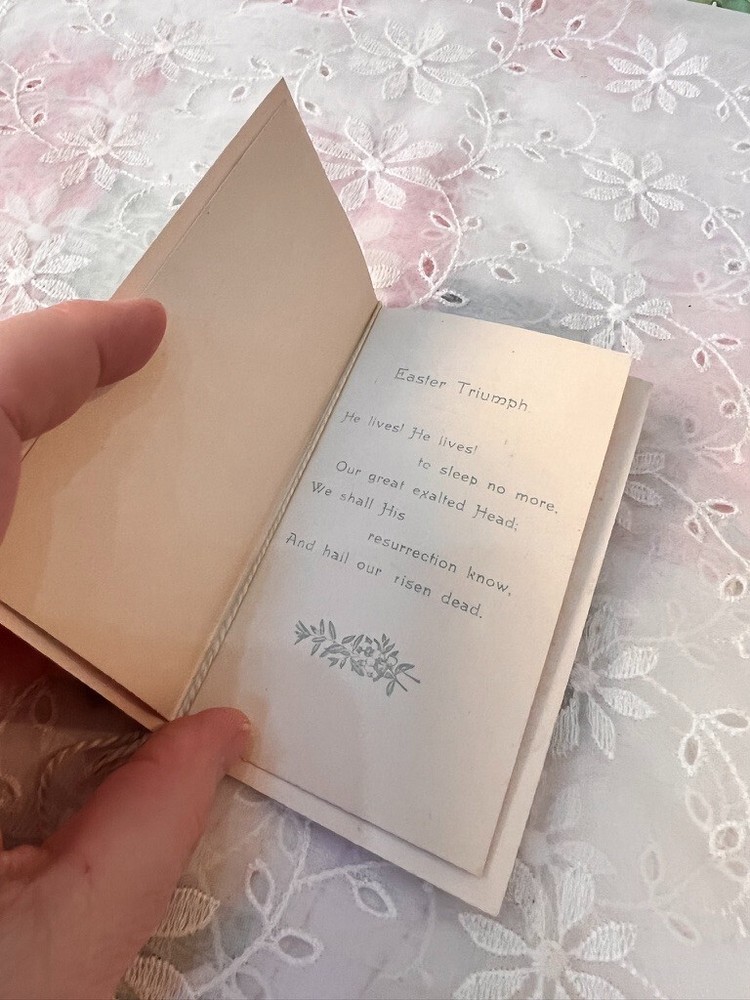 Easter Triumph.
He lives! He lives!
to sleep no more,
Our great exalted Head;
We shall His
resurrection know,
And hail our risen dead.